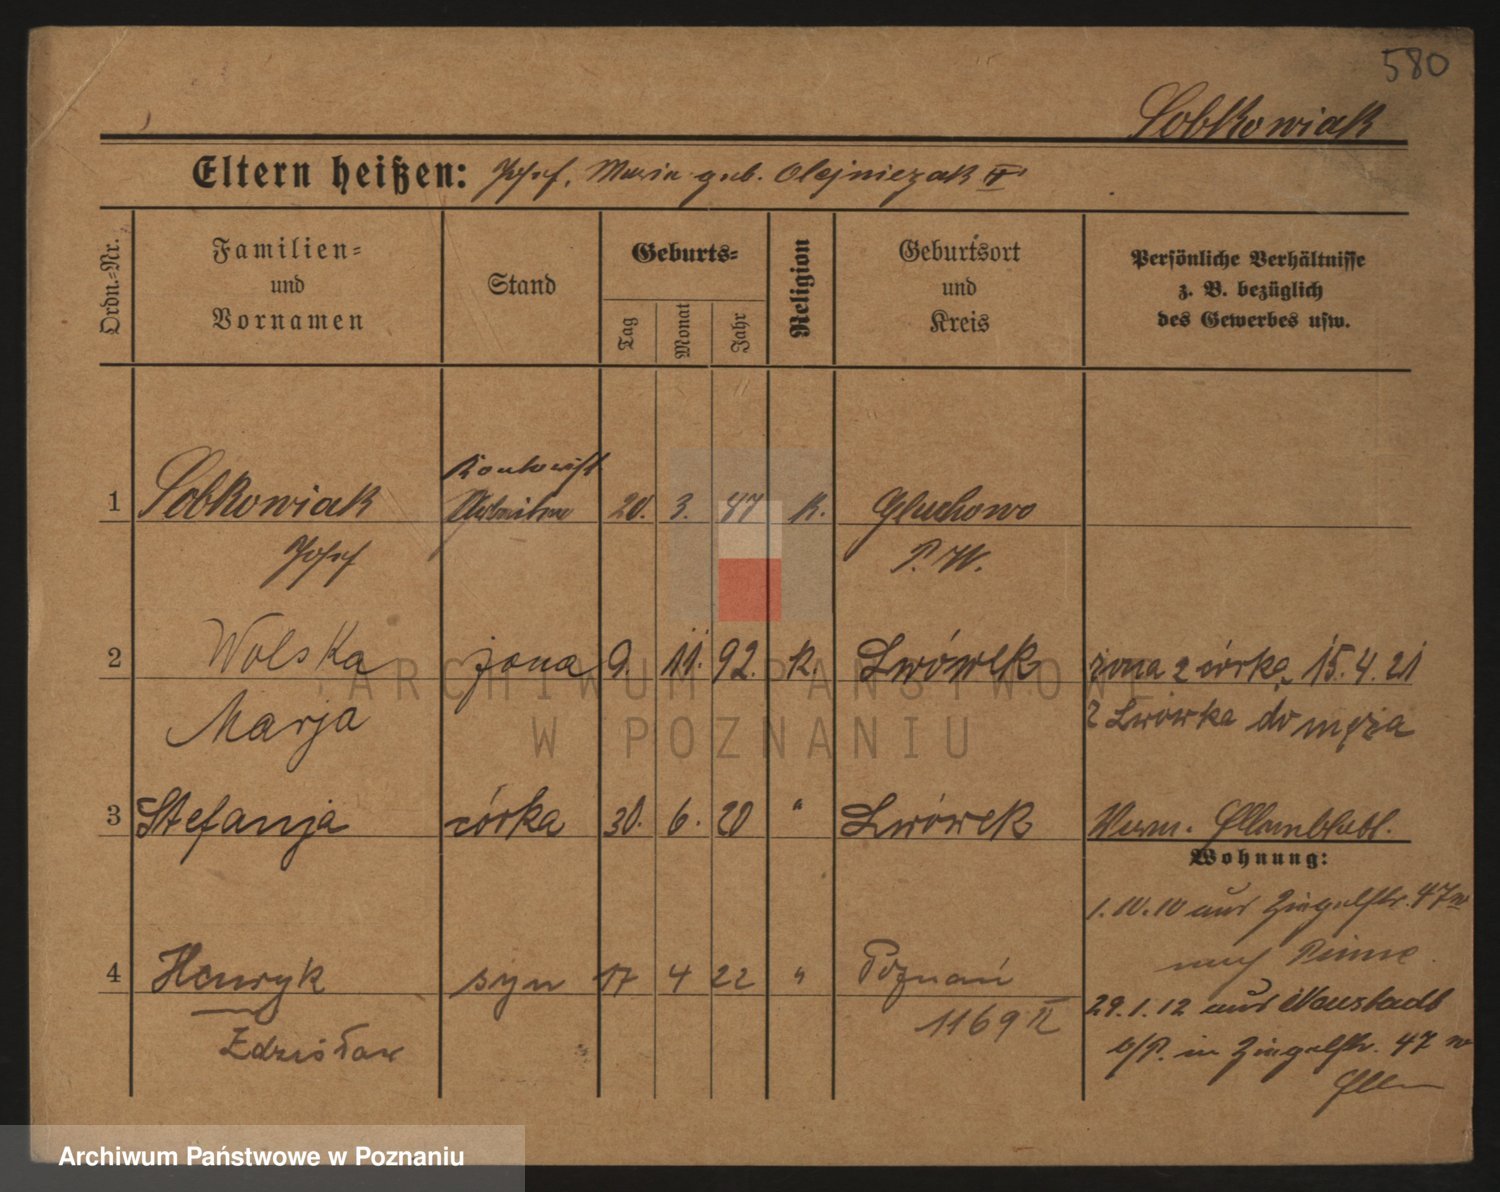 580
Sobkowiak
Eltern heißen: Josef, Maria geb. Olejniczak
Ordn.=Nr.
Familien=
und
Vornamen
Stand
Geburts=
Tag
Monat
Jahr
Religion
Geburtsort
und
Kreis
Persönliche Verhältnisse
z. B. bezüglich
des Gewerbes usw.
1 Sobkowiak 20. 3. 47 K. Gluchowo
Josef P. W.
2 Wolska żona 9. 11. 92. K. Lwówek żona z córką 15.4.21
Marja z Lwówka do męża
3 Stefanja córka 30. 6. 20 " Lwówek
Wohnung:
1.10.10 aus Ziegelstr. 47
nach Pinne.
4 Henryk syn 17 4 22 " Poznań
29.1.12 aus Neustadt
Zdzisław 1169 II
b/P. in Ziegelstr. 47
ARCHIWUM PAŃSTWOWE
W POZNANIU
Archiwum Państwowe w Poznaniu